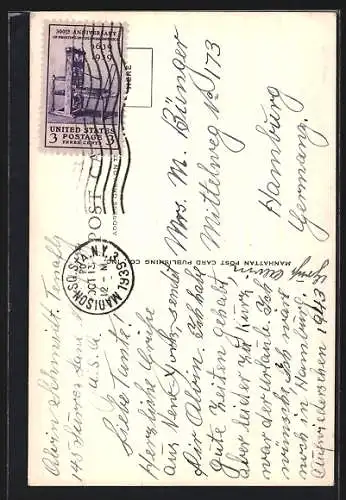 300TH ANNIVERSARY
OF PRINTING IN COLONIAL AMERICA
1639
1939
UNITED STATES
3 POSTAGE 3
THREE CENTS
POST CARD
MADISON SQ. STA. N.Y.
OCT 13
12 - M
1939
HERE
MANHATTAN POST CARD PUBLISHING CO.
Mrs. M. Bünger
Mittelweg No 173
Hamburg
Germany.
Alvin Schmidt. Tenafly
145 Surrey Lane
U.S.A.
Liebe Tante!
Herzliche Grüße
aus New York, sendet
Dir Alvin. Ich habe
gute Zeiten gehabt,
aber leider zu kurz
war der Urlaub. Ich
wünsche, Ich wär
noch in Hamburg.
Aufwiedersehen 1943